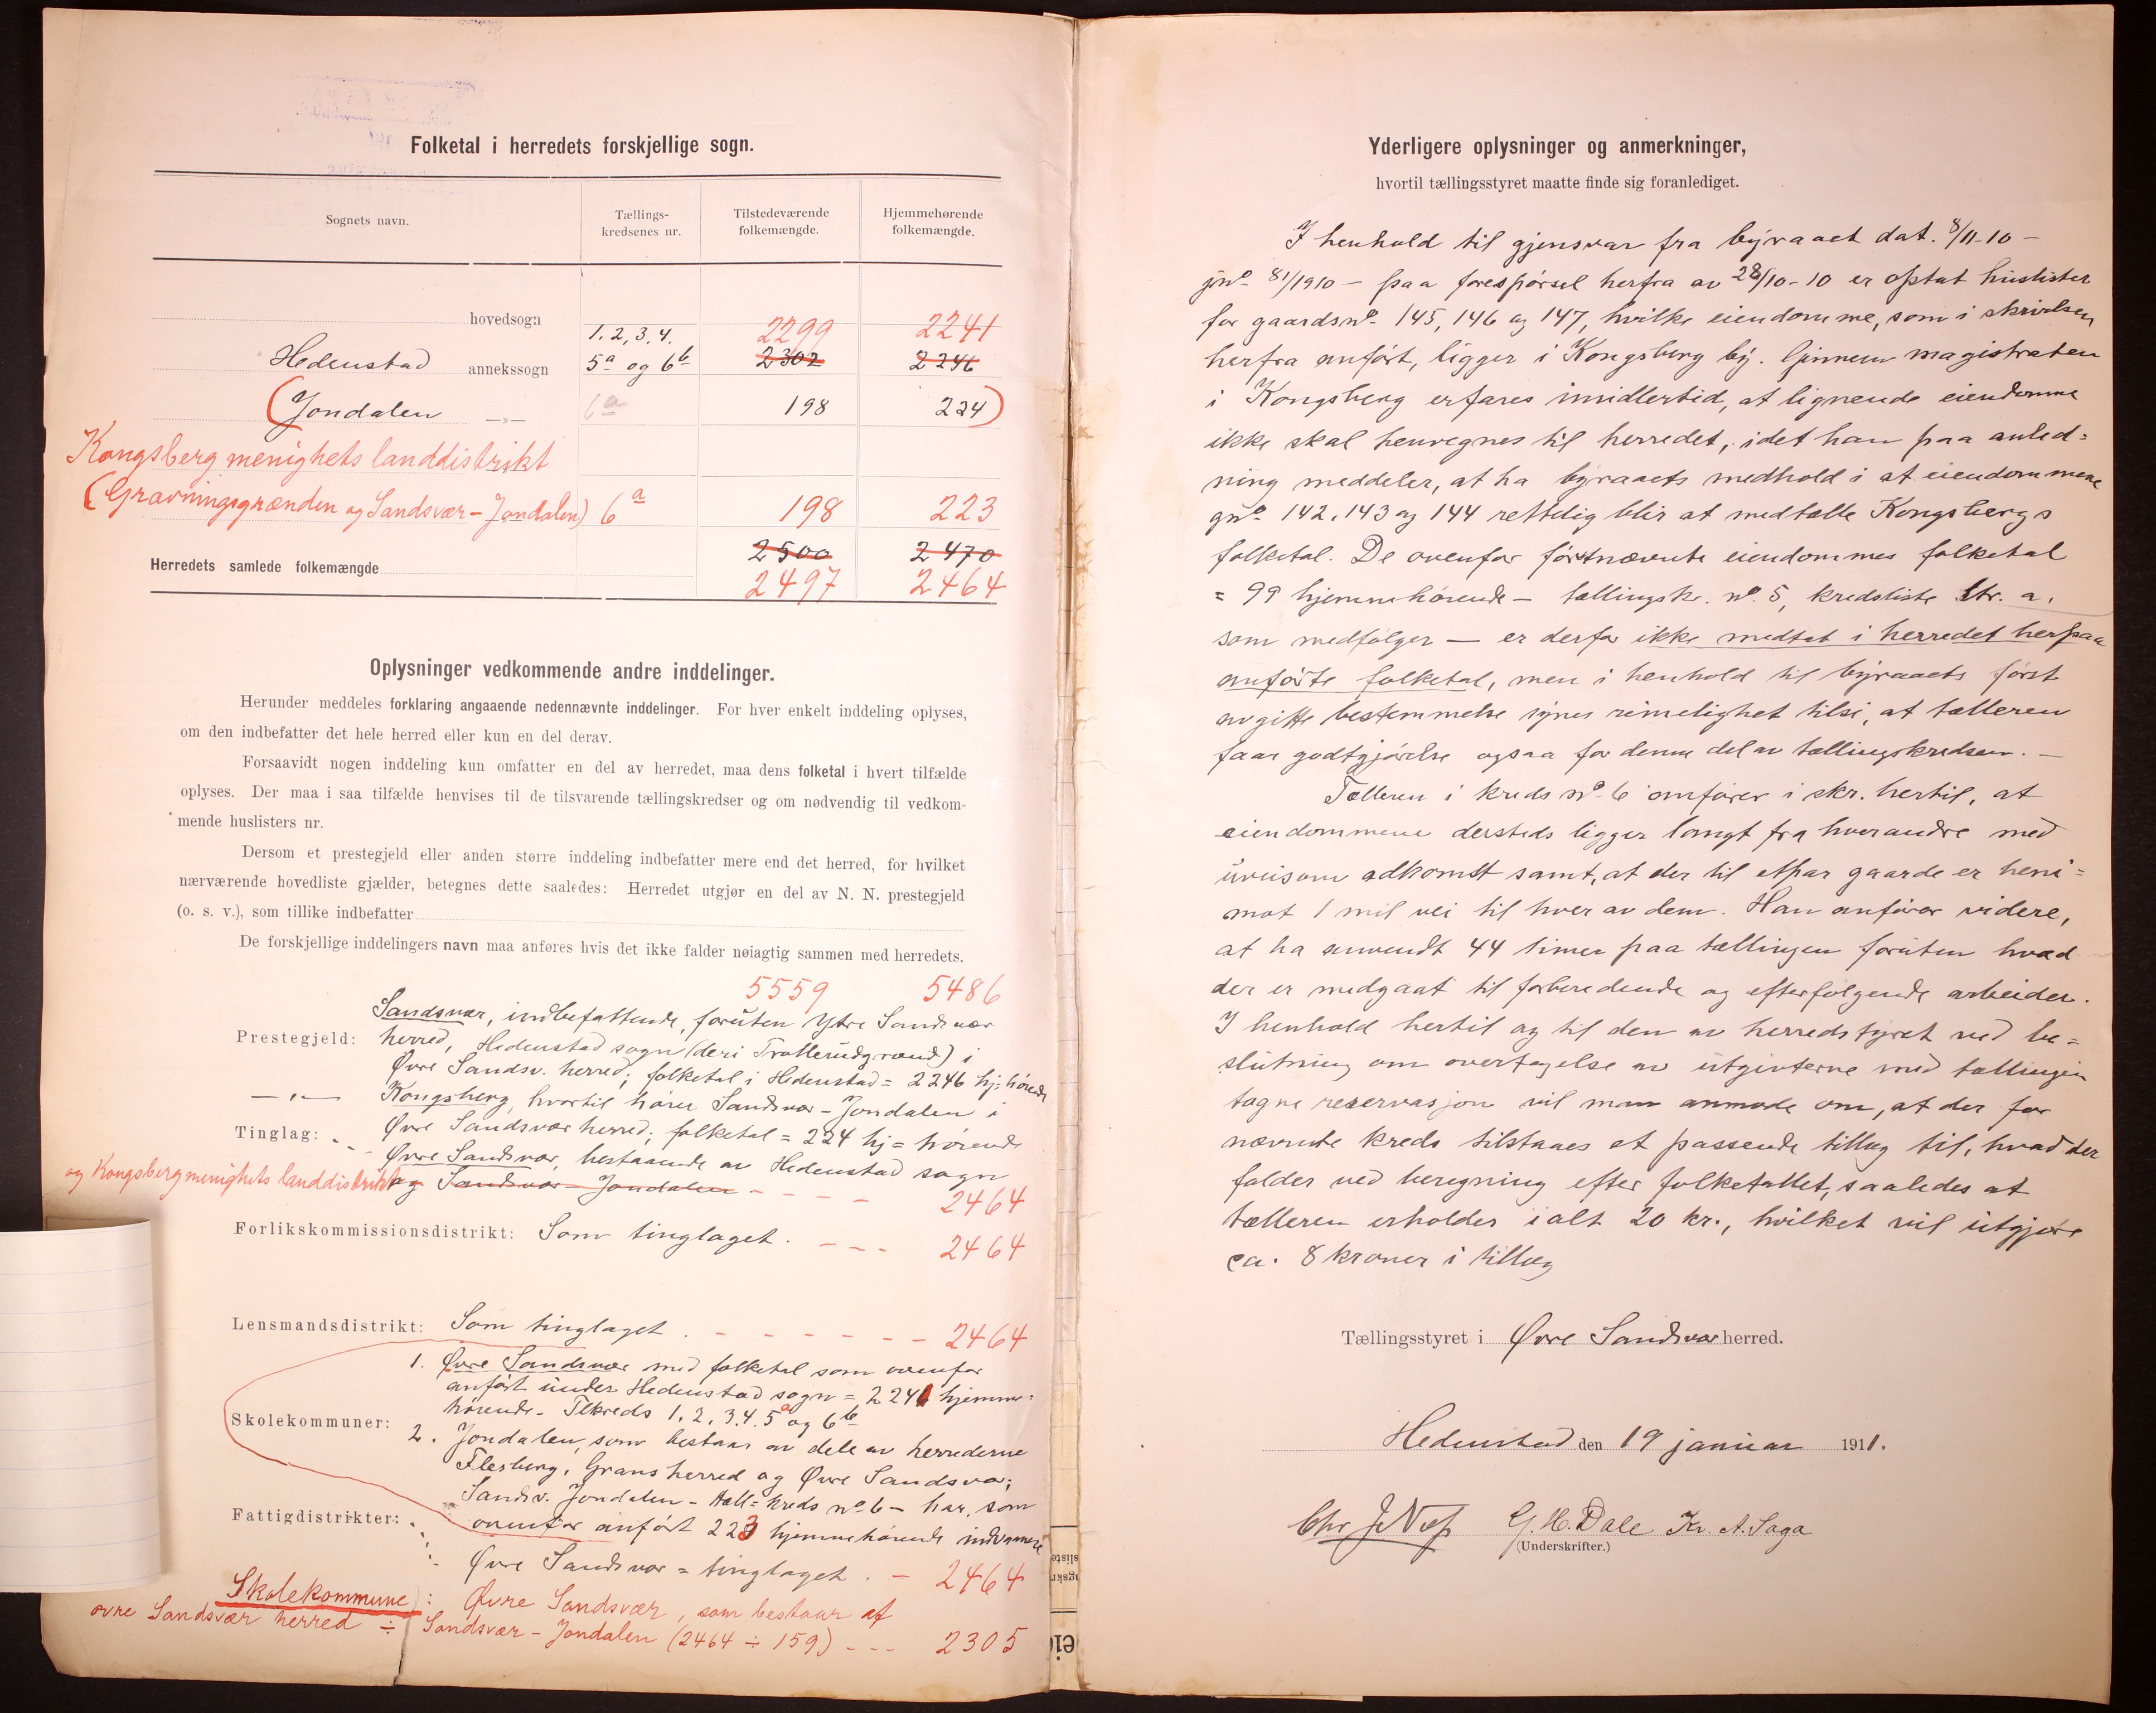 Folketal i herredets forskjellige sogn.
Sognets navn.
Tællings-
kredsenes nr.
Tilstedeværende
folkemængde.
Hjemmehørende
folkemængde.
hovedsogn
1. 2, 3, 4. 2299 2241
Hedenstad annekssogn 5a og 6b 2302 2246
(Jondalen —„— 6a 198 224)
Kongsberg menighets landdistrikt
(Gravningsgrænden og Sandsvær - Jondalen) 6a 198 223
2500 2470
Herredets samlede folkemængde
2497 2464
Oplysninger vedkommende andre inddelinger.
Herunder meddeles forklaring angaaende nedennævnte inddelinger. For hver enkelt inddeling oplyses,
om den indbefatter det hele herred eller kun en del derav.
Forsaavidt nogen inddeling kun omfatter en del av herredet, maa dens folketal i hvert tilfælde
oplyses. Der maa i saa tilfælde henvises til de tilsvarende tællingskredser og om nødvendig til vedkom-
mende huslisters nr.
Dersom et prestegjeld eller anden større inddeling indbefatter mere end det herred, for hvilket
nærværende hovedliste gjælder, betegnes dette saaledes: Herredet utgjør en del av N. N. prestegjeld
(o. s. v.), som tillike indbefatter
De forskjellige inddelingers navn maa anføres hvis det ikke falder nøiagtig sammen med herredets.
5559 5486
Sandsvær, indbefattende, foruten Ytre Sandsvær
Prestegjeld: herred, Hedenstad sogn (deri Trollerudgrænd) i
Øvre Sandsv. herred; folketal i Hedenstad = 2246 hj=hørende
—„— Kongsberg, hvortil hører Sandsvær - Jondalen i
Øvre Sandsvær herred; folketal = 224 hj=hørende
Tinglag: Øvre Sandsvær, bestaaende av Hedenstad sogn
og Kongsberg menighets landdistrikt og Sandsvær Jondalen - - - - 2464
Forlikskommissionsdistrikt: Som tinglaget. - - - 2464
Lensmandsdistrikt: Som tinglaget. - - - - - - 2464
1. Øvre Sandsvær med folketal som ovenfor
anført under Hedenstad sogn = 2241 hjemme=
hørende - Tlkreds 1. 2. 3. 4. 5a og 6b
Skolekommuner:
2. Jondalen, som bestaar av dele av herrederne
Flesberg, Gransherred og Øvre Sandsvær;
Sandsv. Jondalen - tæll=kreds no 6 - har, som
ovenfor anført 223 hjemmehørende indvaanere
Fattigdistrikter:
Øvre Sandsvær = tinglaget. - 2464
Skolekommune: Øvre Sandsvær, som bestaar af
øvre Sandsvær herred ÷ Sandsvær - Jondalen (2464 ÷ 159) - - - 2305
Yderligere oplysninger og anmerkninger,
hvortil tællingsstyret maatte finde sig foranlediget.
I henhold til gjensvar fra byraaet dat. 8/11-10 -
jno 81/1910 - paa forespørsel herfra av 28/10-10 er optat huslister
for gaardsno 145, 146 og 147, hvilke eiendomme, som i skrivelsen
herfra anført, ligger i Kongsberg by. Gjennem magistraten
i Kongsberg erfares imidlertid, at lignende eiendomme
ikke skal henregnes til herredet, idet han paa anled=
ning meddeler, at ha byraaets medhold i at eiendommene
gno 142, 143 og 144 rettelig blir at medtælle Kongsbergs
folketal. De ovenfor førstnævnte eiendommes folketal
= 99 hjemmehørende - tællingskr. no. 5, kredsliste ltr. a.
som medfølger - er derfor ikke medtat i herredet herpaa
anførte folketal, men i henhold til byraaets først
avgitte bestemmelse synes rimelighet tilsi, at tælleren
faar godtgjørelse ogsaa for denne del av tællingskredsen. -
Tælleren i kreds no 6 anfører i skr. hertil, at
eiendommene dersteds ligger langt fra hverandre med
uveisom adkomst samt, at der til etpar gaarde er heni=
mot 1 mil vei til hver av dem. Han anfører videre,
at ha anvendt 44 timer paa tællingen foruten hvad
der er medgaat til forberedende og efterfølgende arbeider.
I henhold hertil og til den av herredstyret ved be=
slutning om overtagelse av utgifterne med tællingen
tagne reservasjon vil man anmode om, at der for
nævnte kreds tilstaaes et passende tillæg til, hvad der
falder ved beregning efter folketallet, saaledes at
tælleren erholder ialt 20 kr., hvilket vil utgjøre
ca. 8 kroner i tillæg
Tællingsstyret i Øvre Sandsvær herred.
Hedenstad den 19 januar 1911.
G. H. Dale Kr. A. Saga
(Underskrifter.)